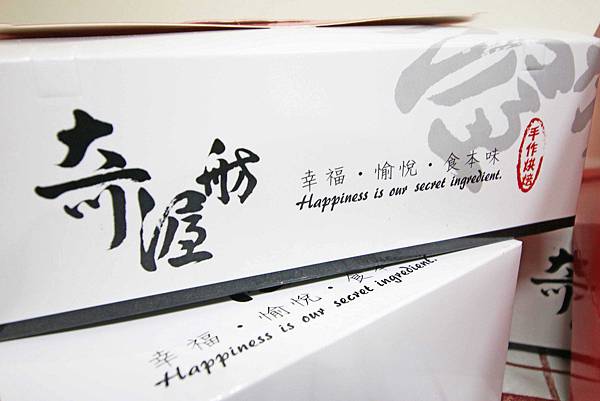 奇渥舫
幸福・愉悅・食本味
Happiness is our secret ingredient.
手作烘焙
幸福・愉悅・食
Happiness is our secret ingredient.
奇